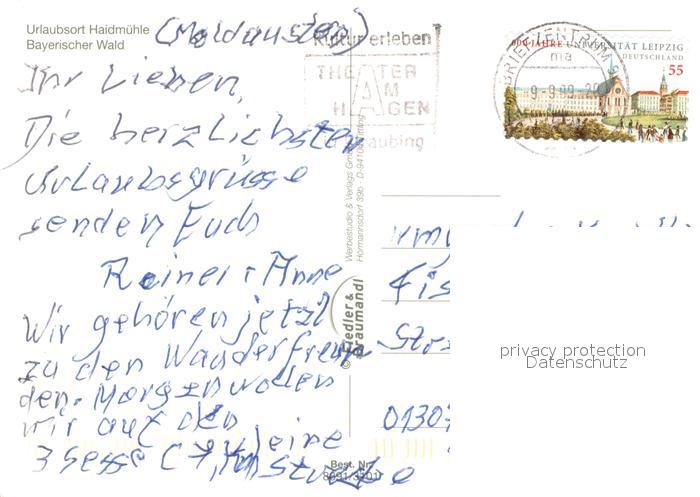 Urlaubsort Haidmühle
Bayerischer Wald
(Moldaustег)
Ihr Lieben,
Die herzlichsten
Urlaubsgrüsse
senden Euch
Reiner + Anne
Wir gehören jetzt
zu den Wanderfreun
den. Morgen wollen
wir auf den
3 Sesse
kleine
Kultur erleben
THEATER
AM
HAGEN
Straubing
600 JAHRE UNIVERSITÄT LEIPZIG
DEUTSCHLAND
55
BRIEFZENTRUM
ma
Werbestudio & Verlags GmbH
Hörmannsdorf 39b · D-94104 Tittling
© Fiedler &
Braumandl
Fis
Str
01307
Best. Nr.
privacy protection
Datenschutz